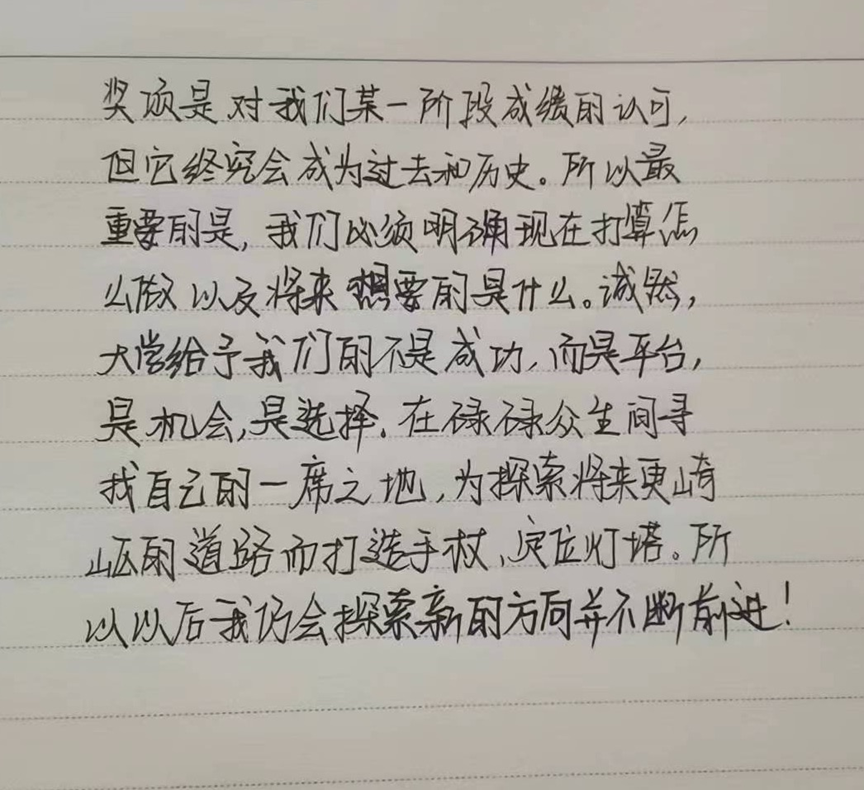 奖项是对我们某一阶段成绩的认可,
但它终究会成为过去和历史。所以最
重要的是,我们必须明确现在打算怎
么做以及将来想要的是什么。诚然,
大学给予我们的不是成功,而是平台,
是机会,是选择.在碌碌众生间寻
找自己的一席之地,为探索将来更崎
岖的道路而打造手杖、定位灯塔。所
以以后我仍会探索新的方向并不断前进!